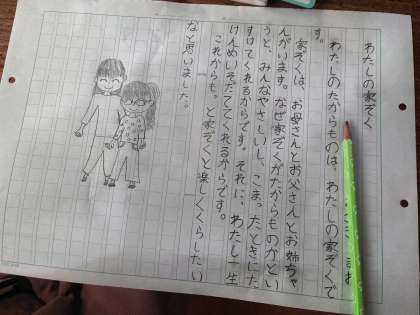 わたしの家ぞく
わたしのたからものは、わたしの家ぞくで
す。
家ぞくは、お母さんとお父さんとお姉ちゃ
んがいます。なぜ家ぞくがたからものかとい
うと、みんなやさしいし、こまったときにた
すけてくれるからです。それに、わたし一生
けんめいそだててくれるからです。
これからも、と家ぞくと楽しくくらしたい
なと思いました。